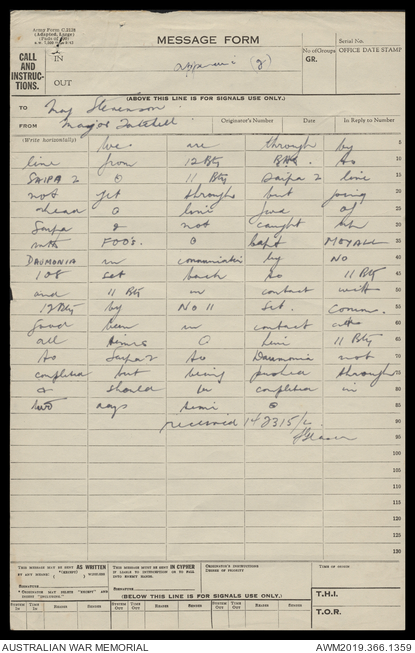 Army Form C.2128
(Adapted, Large)
(Pads of 100)
MESSAGE FORM
Serial No.
CALL
AND
INSTRUC-
TIONS.
IN
OUT
No of Groups
GR.
OFFICE DATE STAMP
(ABOVE THIS LINE IS FOR SIGNALS USE ONLY.)
TO Maj Stevenson
FROM Major
Originator's Number
Date
In Reply to Number
(Write horizontally) We are through by 5
line from 12 Bty to 10
SAIPA 2 O 11 Bty Saipa 2 line 15
not yet through but going 20
ahead O line fwd of 25
Saipa 2 not caught up 30
with FOO's. O Capt MOXALL 35
DAUMONIA in communication by NO 40
108 set back to 11 Bty 45
and 11 Bty in contact with 50
12 Bty by No 11 Set. Comm. 55
good been in contact 60
all times O Line 11 Bty 65
to Saipa 2 to Daumonia not 70
completed but being pushed through 75
& should be completed in 80
two days time O 85
received 14 2315/ 90
95
100
105
110
115
120
125
130
THIS MESSAGE MAY BE SENT AS WRITTEN
BY ANY MEANS. (EXCEPT) WIRELESS
SIGNATURE
THIS MESSAGE MUST BE SENT IN CYPHER
SIGNATURE
ORIGINATOR'S INSTRUCTIONS
DEGREE OF PRIORITY
TIME OF ORIGIN
(BELOW THIS LINE IS FOR SIGNALS USE ONLY.)
SYSTEM IN
TIME IN
READER
SENDER
SYSTEM OUT
TIME OUT
READER
SENDER
SYSTEM OUT
TIME OUT
READER
SENDER
T.H.I.
T.O.R.
AUSTRALIAN WAR MEMORIAL
AWM2019.366.1359